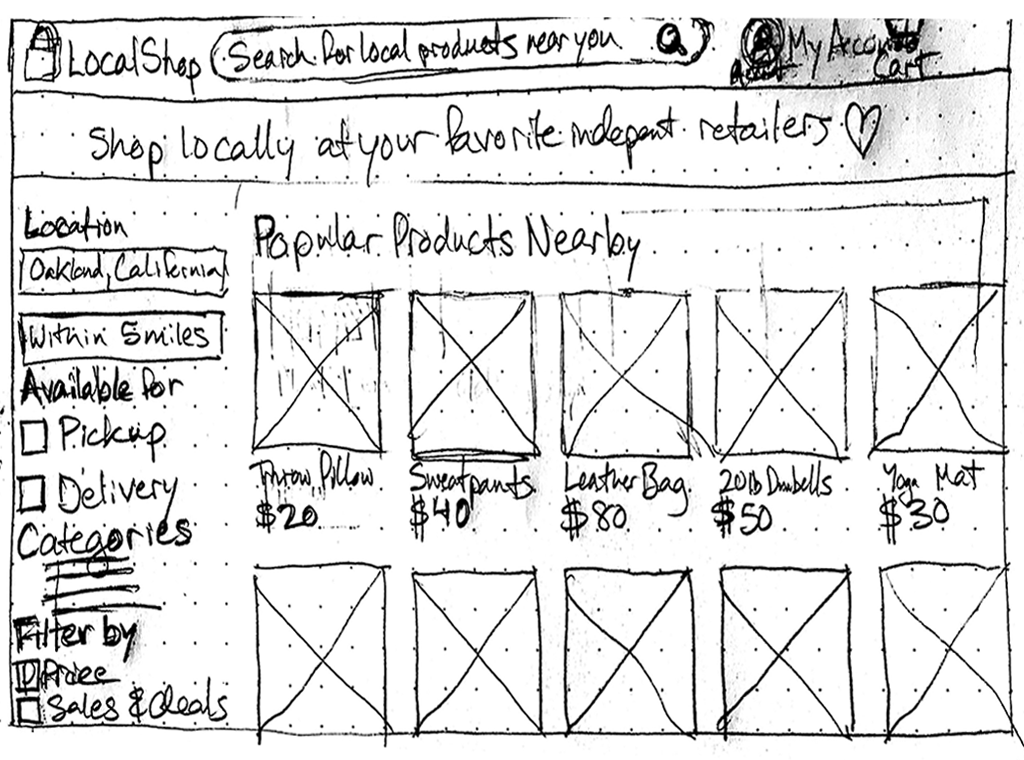 LocalShop
Search for local products near you
My Account
Cart
Shop locally at your favorite indepent retailers
Location
Oakland, California
Within 5 miles
Available for
Pickup
Delivery
Categories
Filter by
Price
Sales & deals
Popular Products Nearby
Throw Pillow
$20
Sweatpants
$40
Leather Bag
$80
20lb Dumbells
$50
Yoga Mat
$30